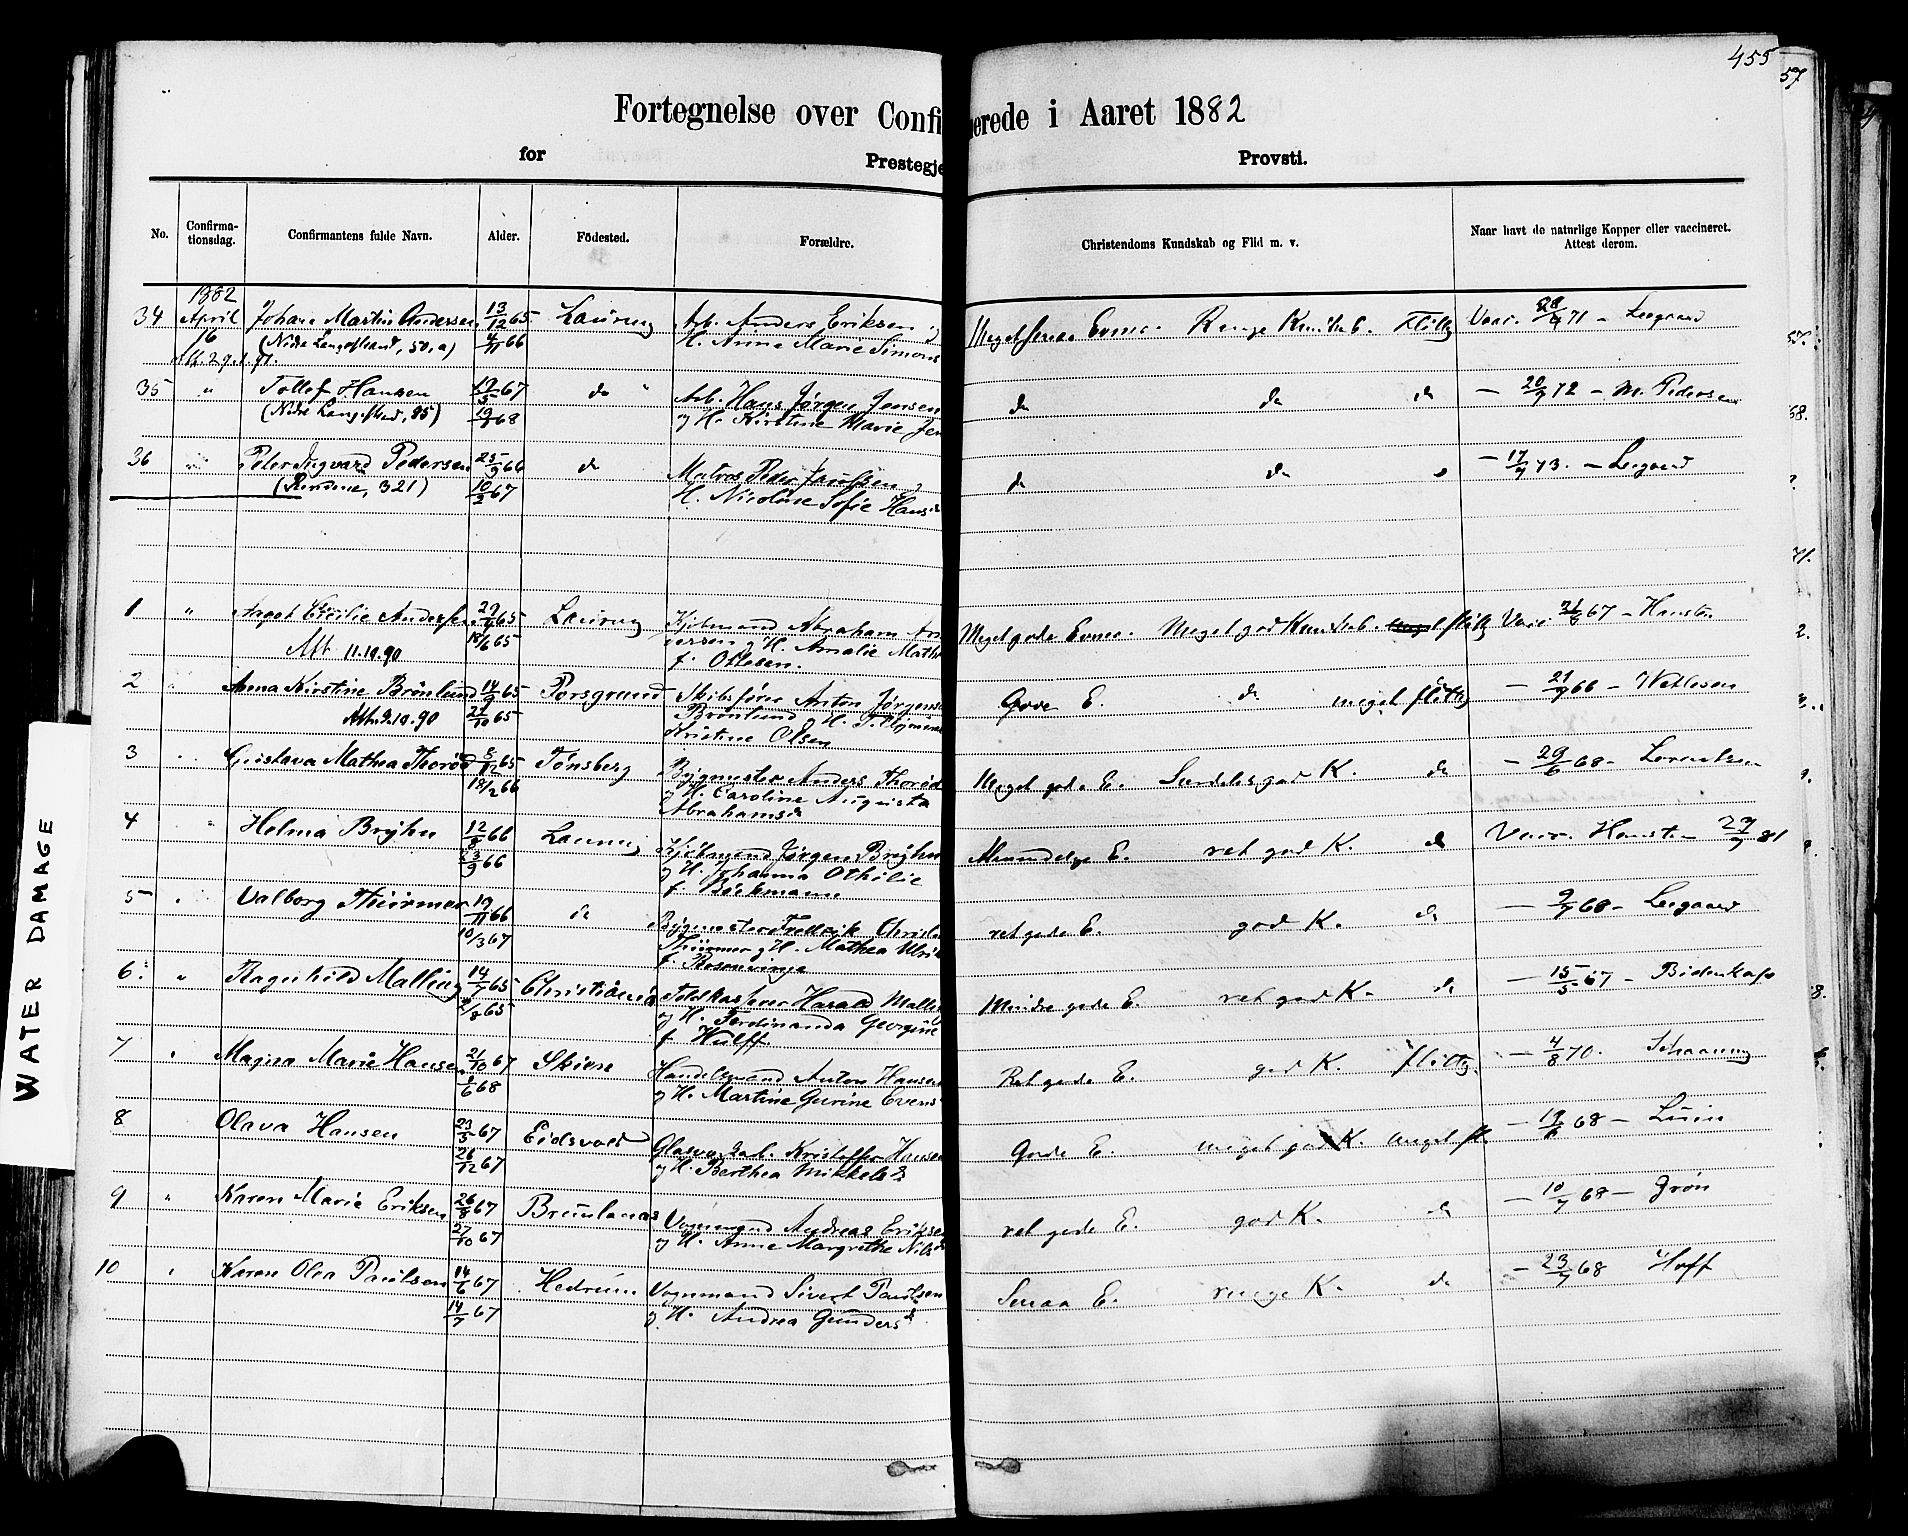 455
57
Fortegnelse over Confi erede i Aaret 1882
for Prestegje Provsti.
No. Confirma-tionsdag. Confirmantens fulde Navn. Alder. Födested. Forældre. Christendoms Kundskab og Flid m. v. Naar havt de naturlige Kopper eller vaccineret. Attest derom.
1882
34 April Johan Martin Andersen 13/12 65 Laurvig Arb. Anders Eriksen Kundskab. Flittig Vacc. 71 - Leegaard
16 (Nedre Langestrand, 50, a) 4/11 66 H. Anne Marie Simons
Att. 29.1.91.
35 " Tollef Hansen 19/5 67 do " Arb. Hans Jørgen Jensen do do do - 20/9 72 - M. Pedersen
(Nedre Langestrand, 85) 19/9 68 og H. Kirstine Marie Jen
36 " Peter Ingvard Pedersen 25/9 66 do Matros Peder Paulsen do do - 17/9 73. - Leegaard
321) 10/2 67 H. Nicoline Sofie Hans
1 " Aagot Cecilie Andersen 65 Laurvig Kjøbmand Abraham An Meget gode Evner. Meget god Kundskab. flittig Vacc. 67 - Hansten
Att 11.10.90 18/6 65 dersen og H. Amalie Math
f. Ottesen.
2 " Anna Kirstine Brönlund 14/9 65 Porsgrund Skibsfører Anton Jørgens Gode E. do meget flittig - 21/9 66 - Wetlesen
Att. 9.10.90 65 Brönlund og H.
Kristine Olsen
3 " Gustava Mathea Thorød 65 Tønsberg Bygmester Anders Thorød Meget gode E. Særdeles god K. do - 29/6 68 - Lorentsen
18/2 66 og H. Caroline Augusta
Abrahamsd
4 " Helma Bryhn 12/8 66 Laurvig Kjøbmand Jørgen Bryhn Almindelige E. ret god K. do Vacc. Hansten 29/9 81
66 og H. Johanna Othilie
f. Beckmann
5 " Valborg Thürmer 19/11 66 do Bygmester Fredrik Christ ret gode E. god K. do - 9/7 68 - Leegaard
10/3 67 Thürmer og H. Mathea Ulrik
f. Rosenvinge
6 " Ragnhild Malling 14/7 65 Christiania Toldkasserer Harald Malling Mindre gode E. ret god K. do - 15/5 67 - Bidenkap
/8 65 og H. Ferdinanda Georgine
f. Wulff
7 " Magna Marie Hansen 21/10 67 Skien Handelsmand Anton Hansen Ret gode E. god K. flittig. - 4/8 70. Schaanning
/6 68 og H. Martine Gurine Evens
8 Olava Hansen 23/5 67 Eidsvold Kristoffer Hansen Gode E. meget god K. meget fl. - 19/6 68 -
26/12 67 og H. Berthea Mikkelsd
9 " Karen Marie Eriksen 26/8 67 Brunlanæs Vognmand Andreas Eriksen ret gode E. god K. do - 10/7 68 - Grön
27/10 67 og H. Anne Margrethe Nilsd
10 " Karen Olea Paulsen 14/6 67 Hedrum Vognmand Sivert Paulsen Smaa E. ringe K. do - 23/7 68 Hoff
14/7 67 og H. Andrea Gundersd
WATER DAMAGE